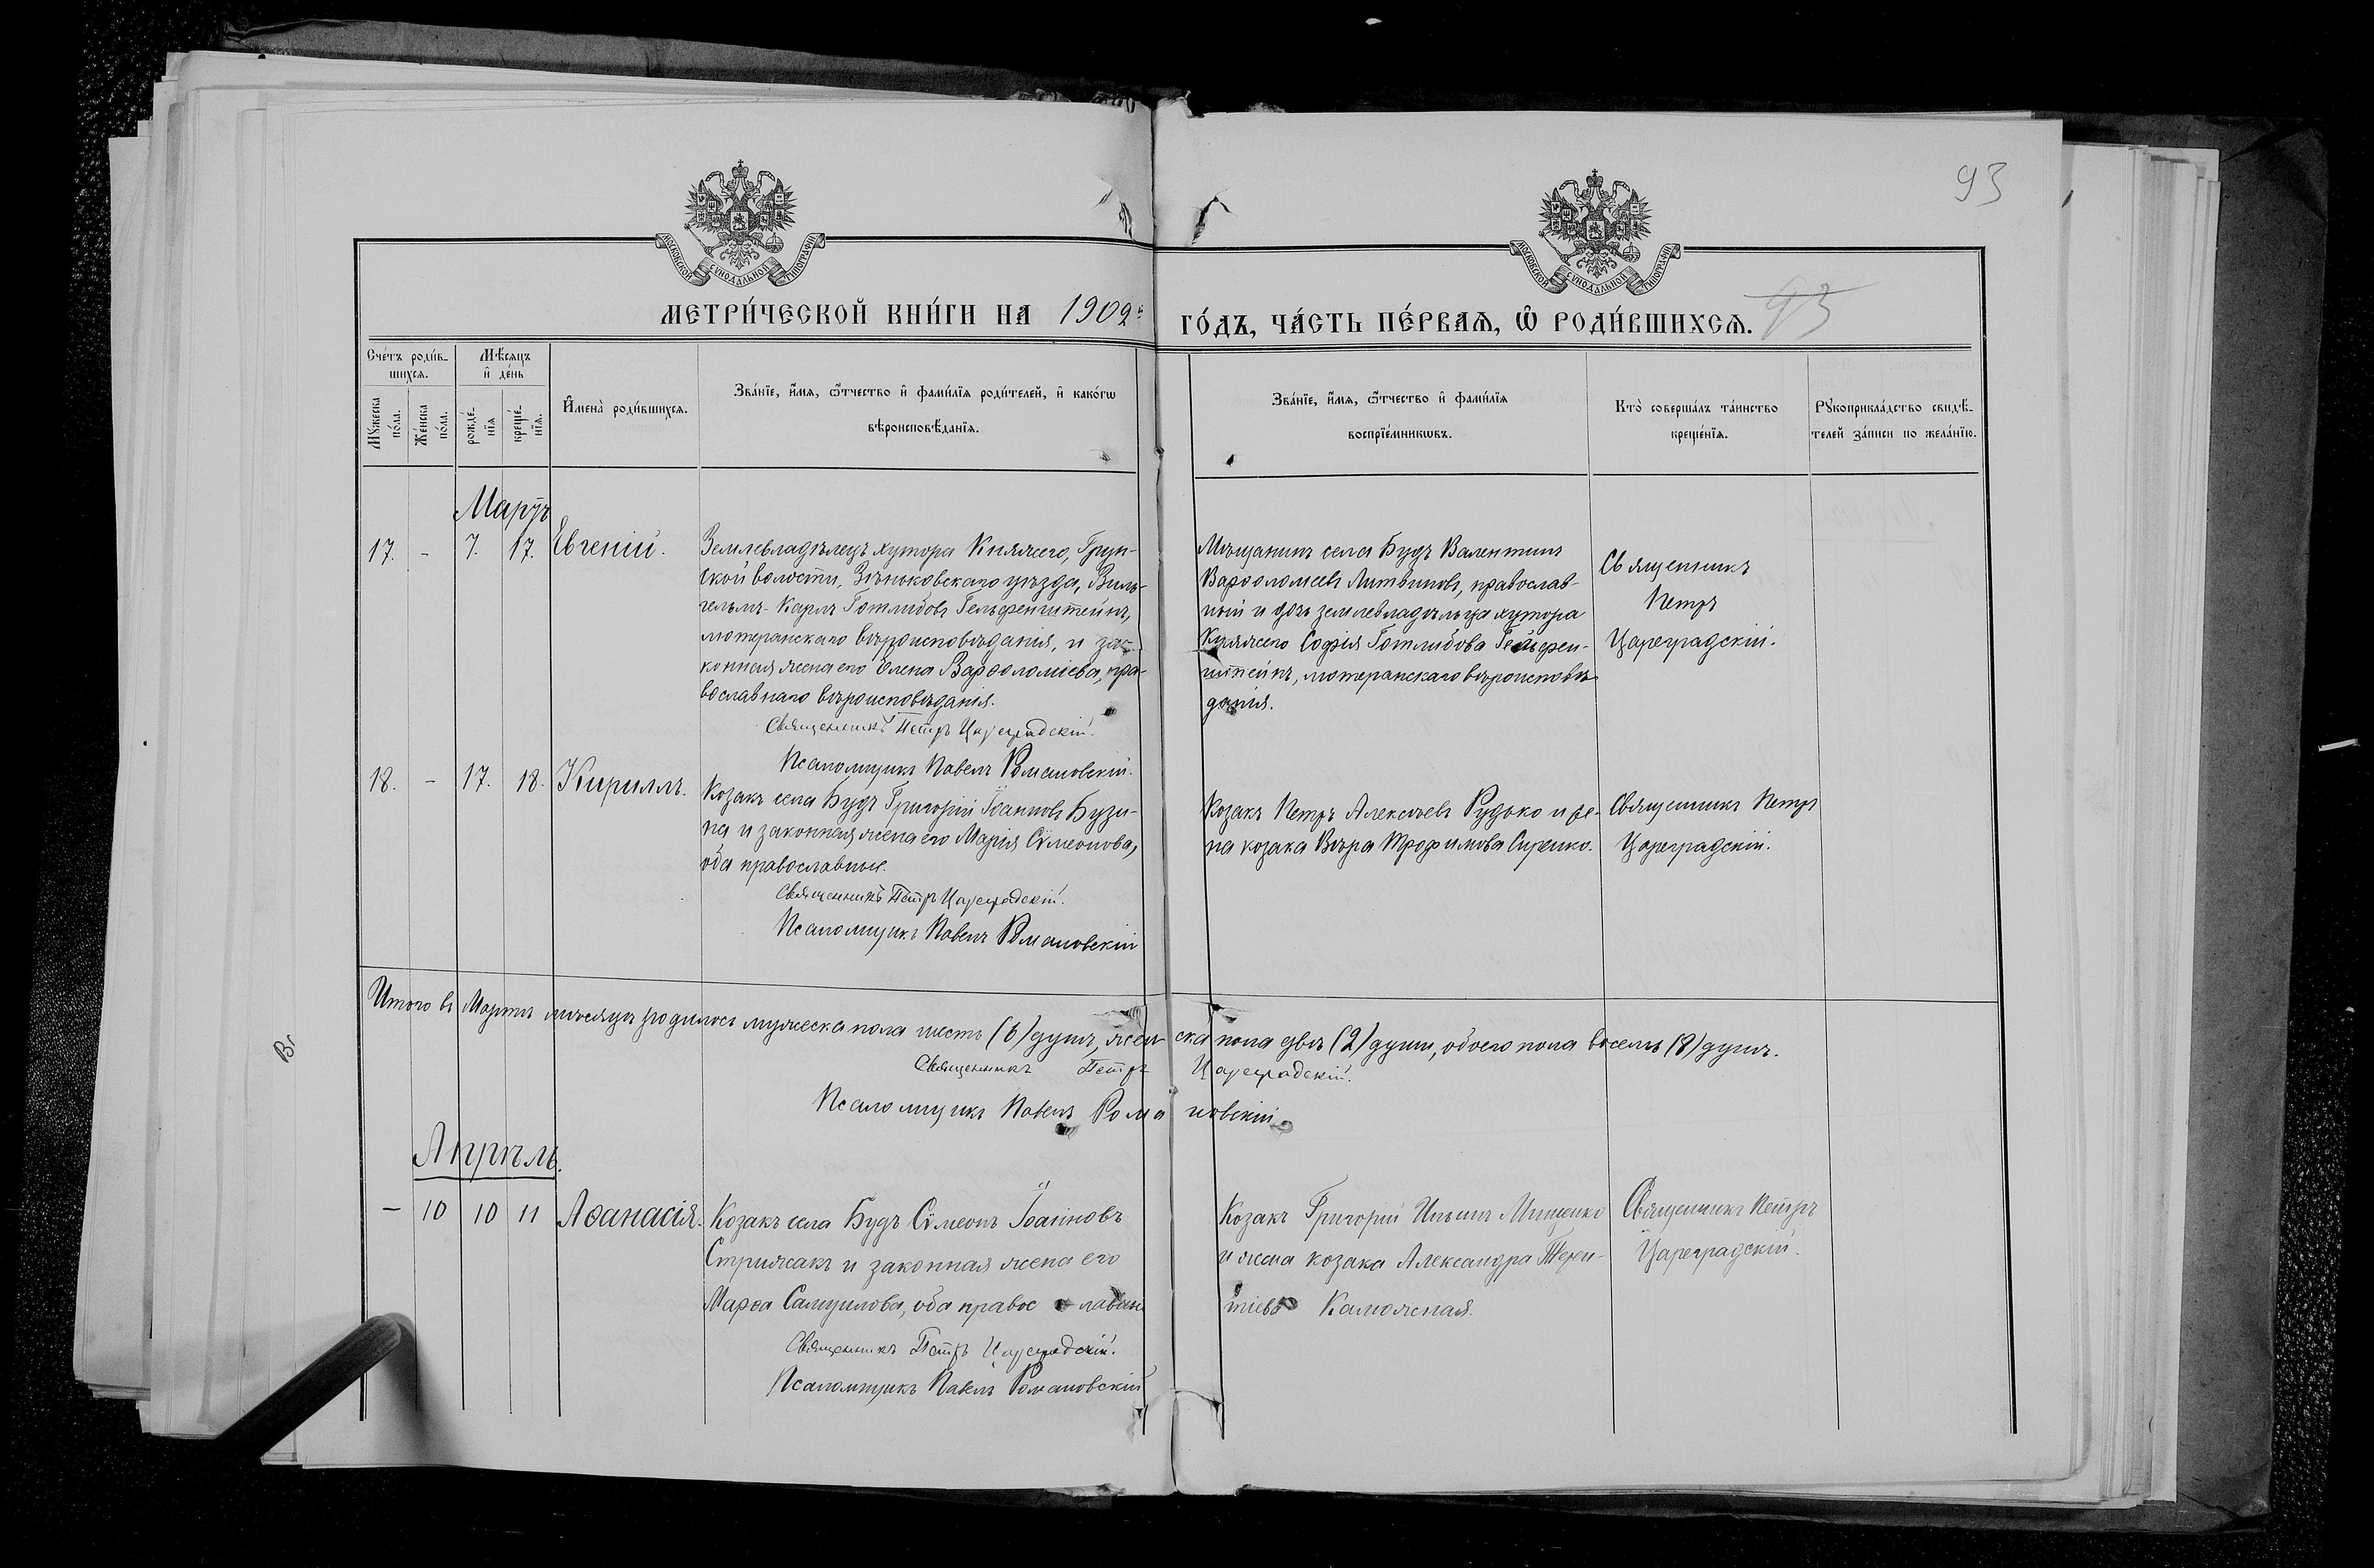 93
МОСКОВСКОЙ СѴНОДАЛЬНОЙ ТИПОГРАФІИ
МОСКОВСКОЙ СѴНОДАЛЬНОЙ ТИПОГРАФІИ
МЕТРИ́ЧЕСКОЙ КНИ́ГИ НА 1902й
ГО́ДЪ, ЧА́СТЬ ПЕ́РВАѦ, Ѡ҆ РОДИ́ВШИХСѦ. 93
Сче́тъ роди́в-
шихсѧ.
Мѣ́сяцъ
и҆ де́нь
Мꙋ́жеска
по́ла.
Же́нска
по́ла.
рожде́-
нїѧ
креще́-
нїѧ.
И҆мена̀ роди́вшихсѧ.
Зва́нїе, и҆́мѧ, ѻ҆́тчество и҆ фами́лїѧ роди́телей, и҆ како́гѡ
вѣроисповѣ́данїѧ.
Зва́нїе, и҆́мѧ, ѻ҆́тчество и҆ фами́лїѧ
воспрїе́мникѡвъ.
Кто̀ соверша́лъ та́инство
креще́нїѧ.
Рꙋкоприкла́дство свидѣ́-
телей за́писи по жела́нїю.
Мартъ
17. - 7. 17. Евгеній.
Землевладѣлецъ хутора Княжего, Грун-
ской волости, Зѣньковскаго уѣзда, Виль-
гельмъ-Карлъ Готлибовъ Гельфенштейнъ,
лютеранскаго вѣроисповѣданія, и за-
конная жена его Елена Варѳоломіева, пра-
вославнаго вѣроисповѣданія.
Священникъ Петръ Цареградскій.
Псаломщикъ Павелъ Романовскій.
Мѣщанинъ села Будъ Валентинъ
Варѳоломеевъ Литвиновъ, православ-
ный и дочь землевладѣльца хутора
Княжего Софія Готлибова Гельфен-
штейнъ, лютеранскаго вѣроисповѣ
данія.
Священникъ
Петръ
Цареградскій.
18. - 17. 18. Кириллъ.
Козакъ села Будъ Григорій Іоанновъ Бузи-
на и законная жена его Марія Сѵмеонова,
оба православные.
Священникъ Петръ Цареградскій.
Псаломщикъ Павелъ Романовскій
Козакъ Петръ Алексѣевъ Рудько и же-
на козака Вѣра Трофимова Сиренко.
Священникъ Петръ
Цареградскій.
Итого въ Мартѣ мѣсяцѣ родилось мужеска пола шесть (6) душъ, женска пола двѣ (2) души, обоего пола восемь (8) душъ.
Священникъ Петръ Цареградскій.
Псаломщикъ Павелъ Романовскій
Апрѣль.
- 10 10 11 Аѳанасія.
Козакъ села Будъ Сѵмеонъ Іоанновъ
Стрижакъ и законная жена его
Марѳа Самуилова, оба православн
Священникъ Петръ Цареградскій.
Псаломщикъ Павелъ Романовскій
Козакъ Григорій Ильинъ Мищенко
и жена козака Александра Терен-
тіева Каможная.
Священникъ Петръ
Цареградскій.